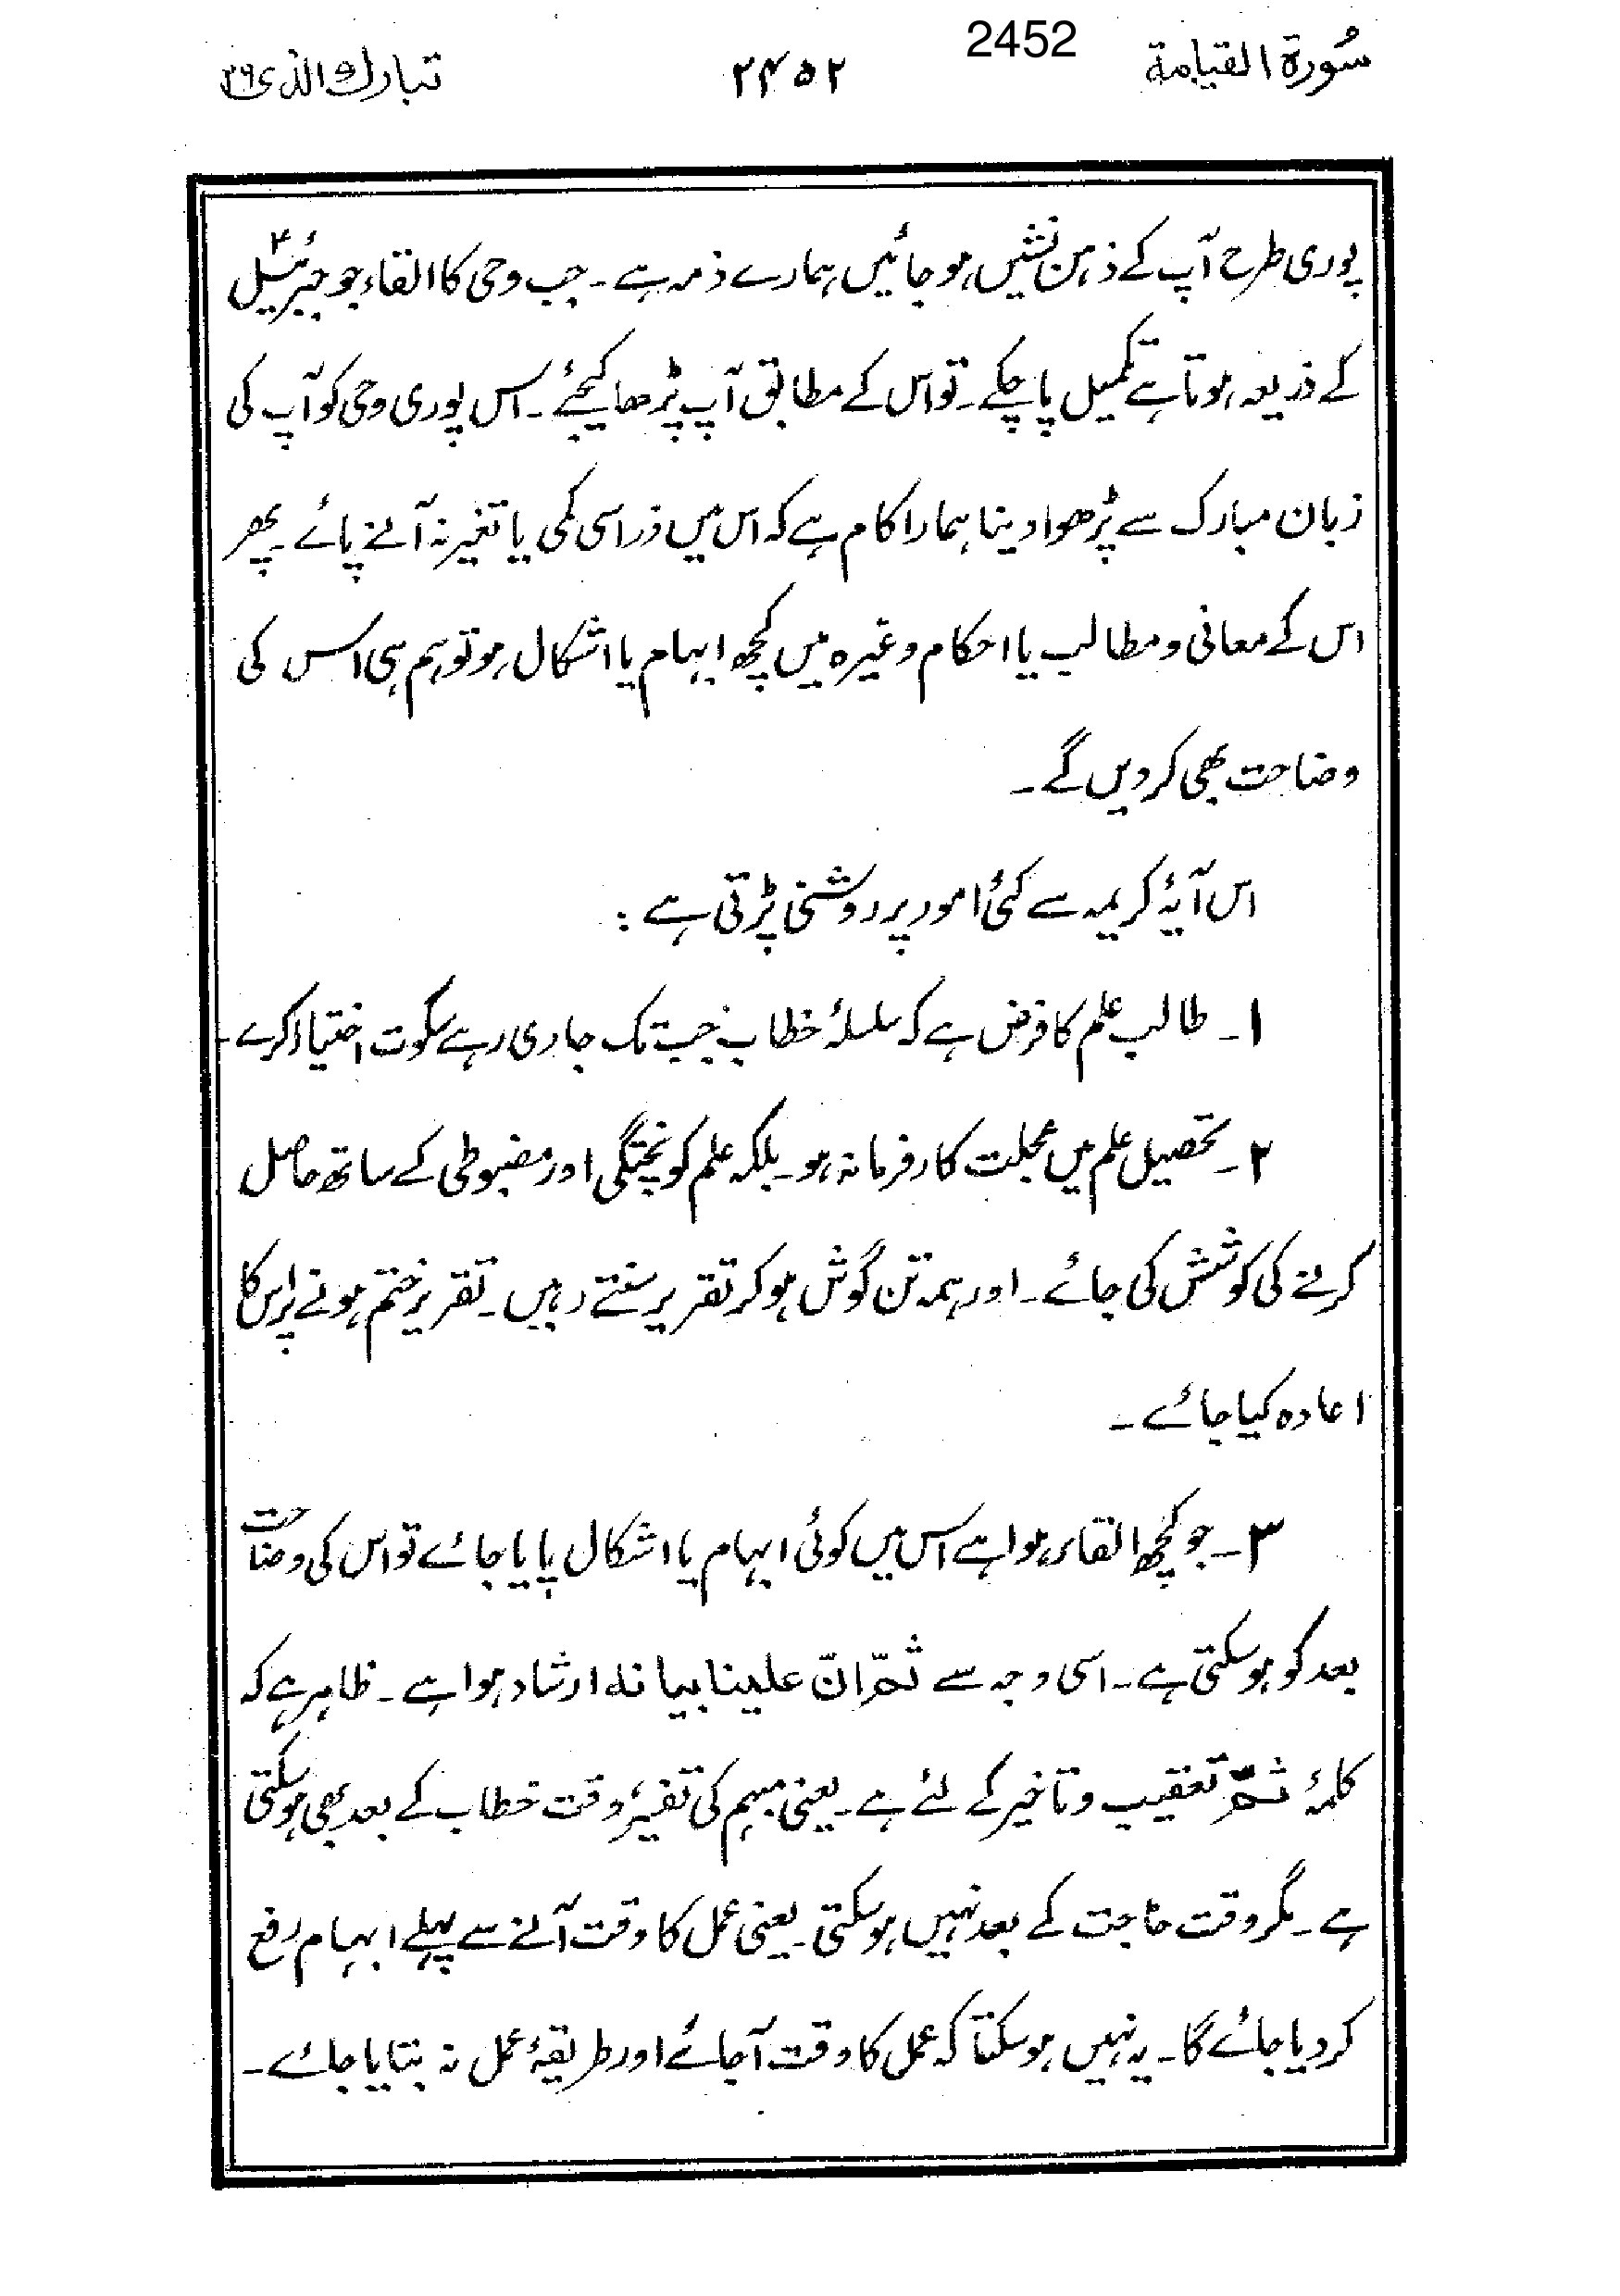 سُورة القيامة 2452 ۲۴۵۲ تبارك الذى ۲۹
پوری طرح آپ کے ذہن نشیں ہو جائیں ہمارے ذمہ ہے ۔ جب وحی کا القاء جو جبرئیلؑ
کے ذریعہ ہوتا ہے تکمیل پا چکے ۔ تو اس کے مطابق آپ پڑھا کیجئے ۔ اس پوری وحی کو آپ کی
زبان مبارک سے پڑھوا دینا ہمارا کام ہے کہ اس میں ذرا سی کمی یا تغیر نہ آنے پائے ۔ پھر
اس کے معانی و مطالب یا احکام وغیرہ میں کچھ ابہام یا اشکال ہو تو ہم ہی اس کی
وضاحت بھی کر دیں گے ۔
اس آیۂ کریمہ سے کئی امور پر روشنی پڑتی ہے :
۱ ۔ طالب علم کا فرض ہے کہ سلسلۂ خطاب جب تک جاری رہے سکوت اختیار کرے ۔
۲ ۔ تحصیل علم میں عجلت کار فرما نہ ہو ۔ بلکہ علم کو پختگی اور مضبوطی کے ساتھ حاصل
کرنے کی کوشش کی جائے ۔ اور ہمہ تن گوش ہو کر تقریر سنتے رہیں ۔ تقریر ختم ہونے پر اس کا
اعادہ کیا جائے ۔
۳ ۔ جو کچھ القاء ہوا ہے اس میں کوئی ابہام یا اشکال پایا جائے تو اس کی وضاحت
بعد کو ہو سکتی ہے ۔ اسی وجہ سے ثمّ انّ علینا بیانہ ارشاد ہوا ہے ۔ ظاہر ہے کہ
کلمۂ ثمّ تعقیب و تاخیر کے لئے ہے ۔ یعنی مبہم کی تفسیر وقت خطاب کے بعد بھی ہو سکتی
ہے ۔ مگر وقت حاجت کے بعد نہیں ہو سکتی ۔ یعنی عمل کا وقت آنے سے پہلے ابہام رفع
کر دیا جائے گا ۔ یہ نہیں ہو سکتا کہ عمل کا وقت آجائے اور طریقۂ عمل نہ بتایا جائے ۔